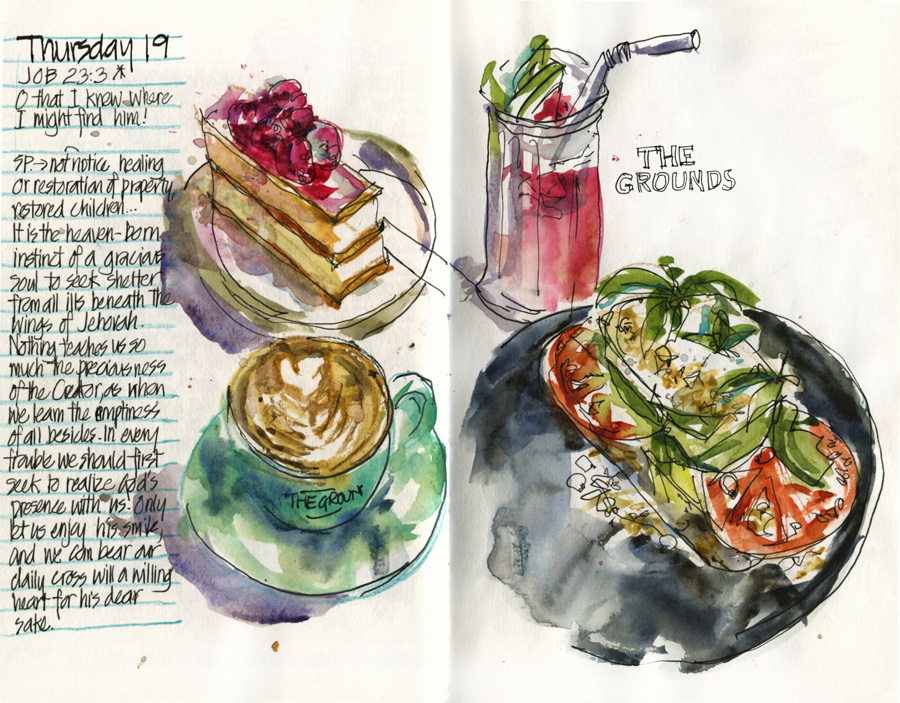 Thursday 19
JOB 23:3 *
O that I knew where
I might find him!
SP → not notice healing
or restoration of property
restored children...
It is the heaven-born
instinct of a gracious
soul to seek shelter
from all ills beneath the
wings of Jehovah.
Nothing teaches us so
much the preciousness
of the Creator as when
we learn the emptiness
of all besides. In every
trouble we should first
seek to realize God's
presence with us. Only
let us enjoy his smile,
and we can bear our
daily cross will a willing
heart for his dear
sake.
THE GROUN
THE
GROUNDS